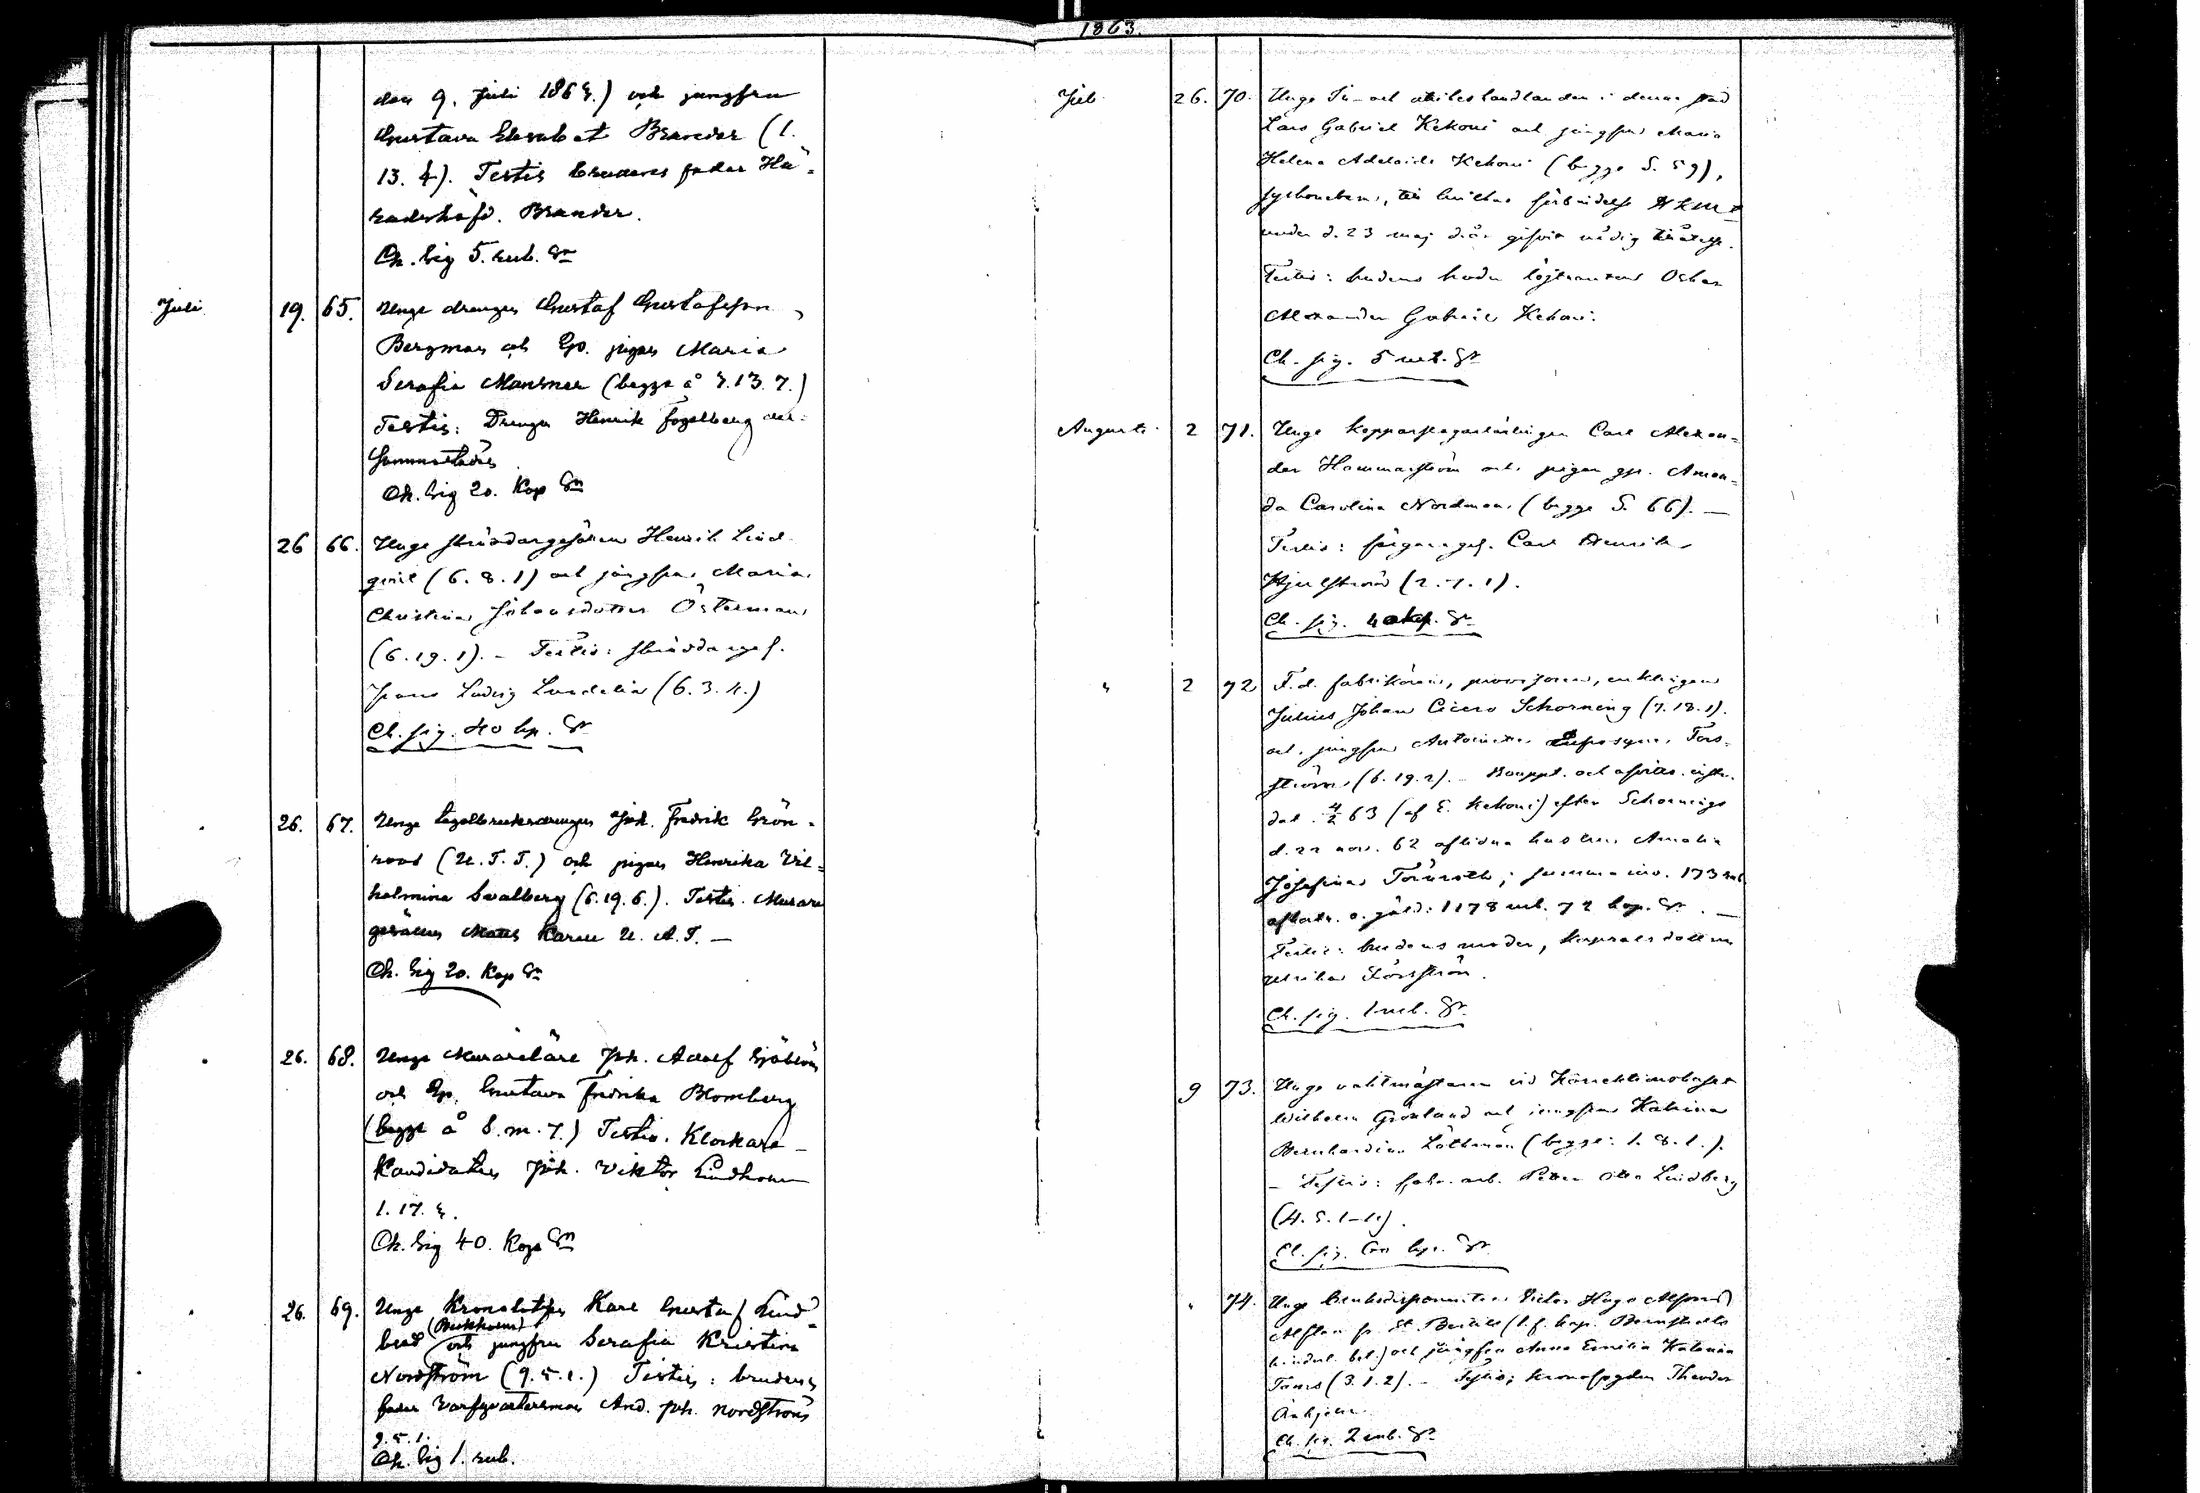 1863.
den 9. Juli 1863.) och jungfru
Gustava Elisabet Brander (1.
13. 4). Testis brudens fader Hä-
radshöfd. Brander.
Ch. sig 5. rub. Sr
Juli 19. 65. Unge drengen Gustaf Gustafsson
Bergman och Gp. pigan Maria
Serafia Mansner (begge å 3.13.7.)
Testis: Drengen Henrik Fogelberg der-
sammastädes
Ch. Sig 20. Kop Sr
26 66. Unge skräddargesällen Henrik Lind-
qvist (6.8.1) och jungfru Maria
Christina Johansdotter Österman
(6.19.1). - Testis: skräddareges.
Frans Ludvig Lundelin (6.3.4.)
Ch. sig. 40 kp. Sr
26. 67. Unge tegelbruksdrengen Joh. Fredrik Grön-
roos (U.T.T.) och pigan Henrika Vil-
helmina Svalberg (6.19.6.). Testis. Murare
gesällen Matts Karen U. A. T. —
Ch. Sig 20. Kop Sr
26. 68. Unge Murarelärl. Joh. Adolf Sjöblom
och Gp. Gustava Fredrika Blomberg
(begge å S. m. 7.) Testis. Klockare-
Kandidaten Joh. Viktor Lindholm
1. 17. 3.
Ch. Sig 40. Kop Sr
26. 69. Unge Kronolotsen Karl Gustaf Lind-
blad (Beckholm) och jungfru Serafia Kristina
Nordström (9.5.1.) Testis: brudens
fader Varfqvartersman And. Joh. Nordström
9.5.1.
Ch. Sig 1. rub.
Juli 26. 70. Unge In- och utrikeshandlanden i denna stad
Lars Gabriel Kekoni och jungfru Maria
Helena Adelaide Kekoni (begge S. 59),
syskonebarn, till hvilkas förbindelse HKMt
under d. 23 maj d. år gifvit nådig tillåtelse.
Testis: brudens broder löjtnanten Oskar
Alexander Gabriel Kekoni.
Ch. sig. 5 rub. Sr
Augusti 2 71. Unge kopparslagarlärlingen Carl Alexan-
der Hammarström och pigan gp. Aman-
da Carolina Nordman (begge S. 66). —
Testis: färgareges. Carl Henrik
Hjulström (2.7.1).
Ch. sig. 40 kp. Sr
" 2 72 F.d. fabrikören, provisorn, enklingen
Julius Johan Cicero Schorning (7.18.1).
och jungfru Antoinette Eufrosyne Fors-
ström (6.19.2). - Bouppt. och afvittr. instr.
dat. 4/2 63 (af E. Kekoni) efter Schornings
d. 22 nov. 62 aflidna hustru Amalia
Josefina Törnroth; summa inv. 173 rub.
afkortn. o. gäld: 1178 rub. 72 kop. Sr. —
Testis: brudens moder, kapralsdottern
Ulrika Forsström.
Ch. sig. 1 rub. Sr.
9 73. Unge vaktmästaren vid Korrektionshuset
Wilhelm Grönlund och jungfru Katrina
Bernhardina Löthman (begge: 1.8.1.).
- Testis: fabr. arb. Petter Otto Lindberg
(4.5.1-1).
Ch. sig. 60 kp. Sr
" 74. Unge bruksdisponenten Victor Hugo Alfons
Alftan fr. St. Bertils (1.f. kap. Bernstedts
hinderl. bet.) och jungfru Anna Emilia Katarina
Tims (3.1.2). - Testis; kronofogden Theodor
Ch. sig. 2 rub. Sr